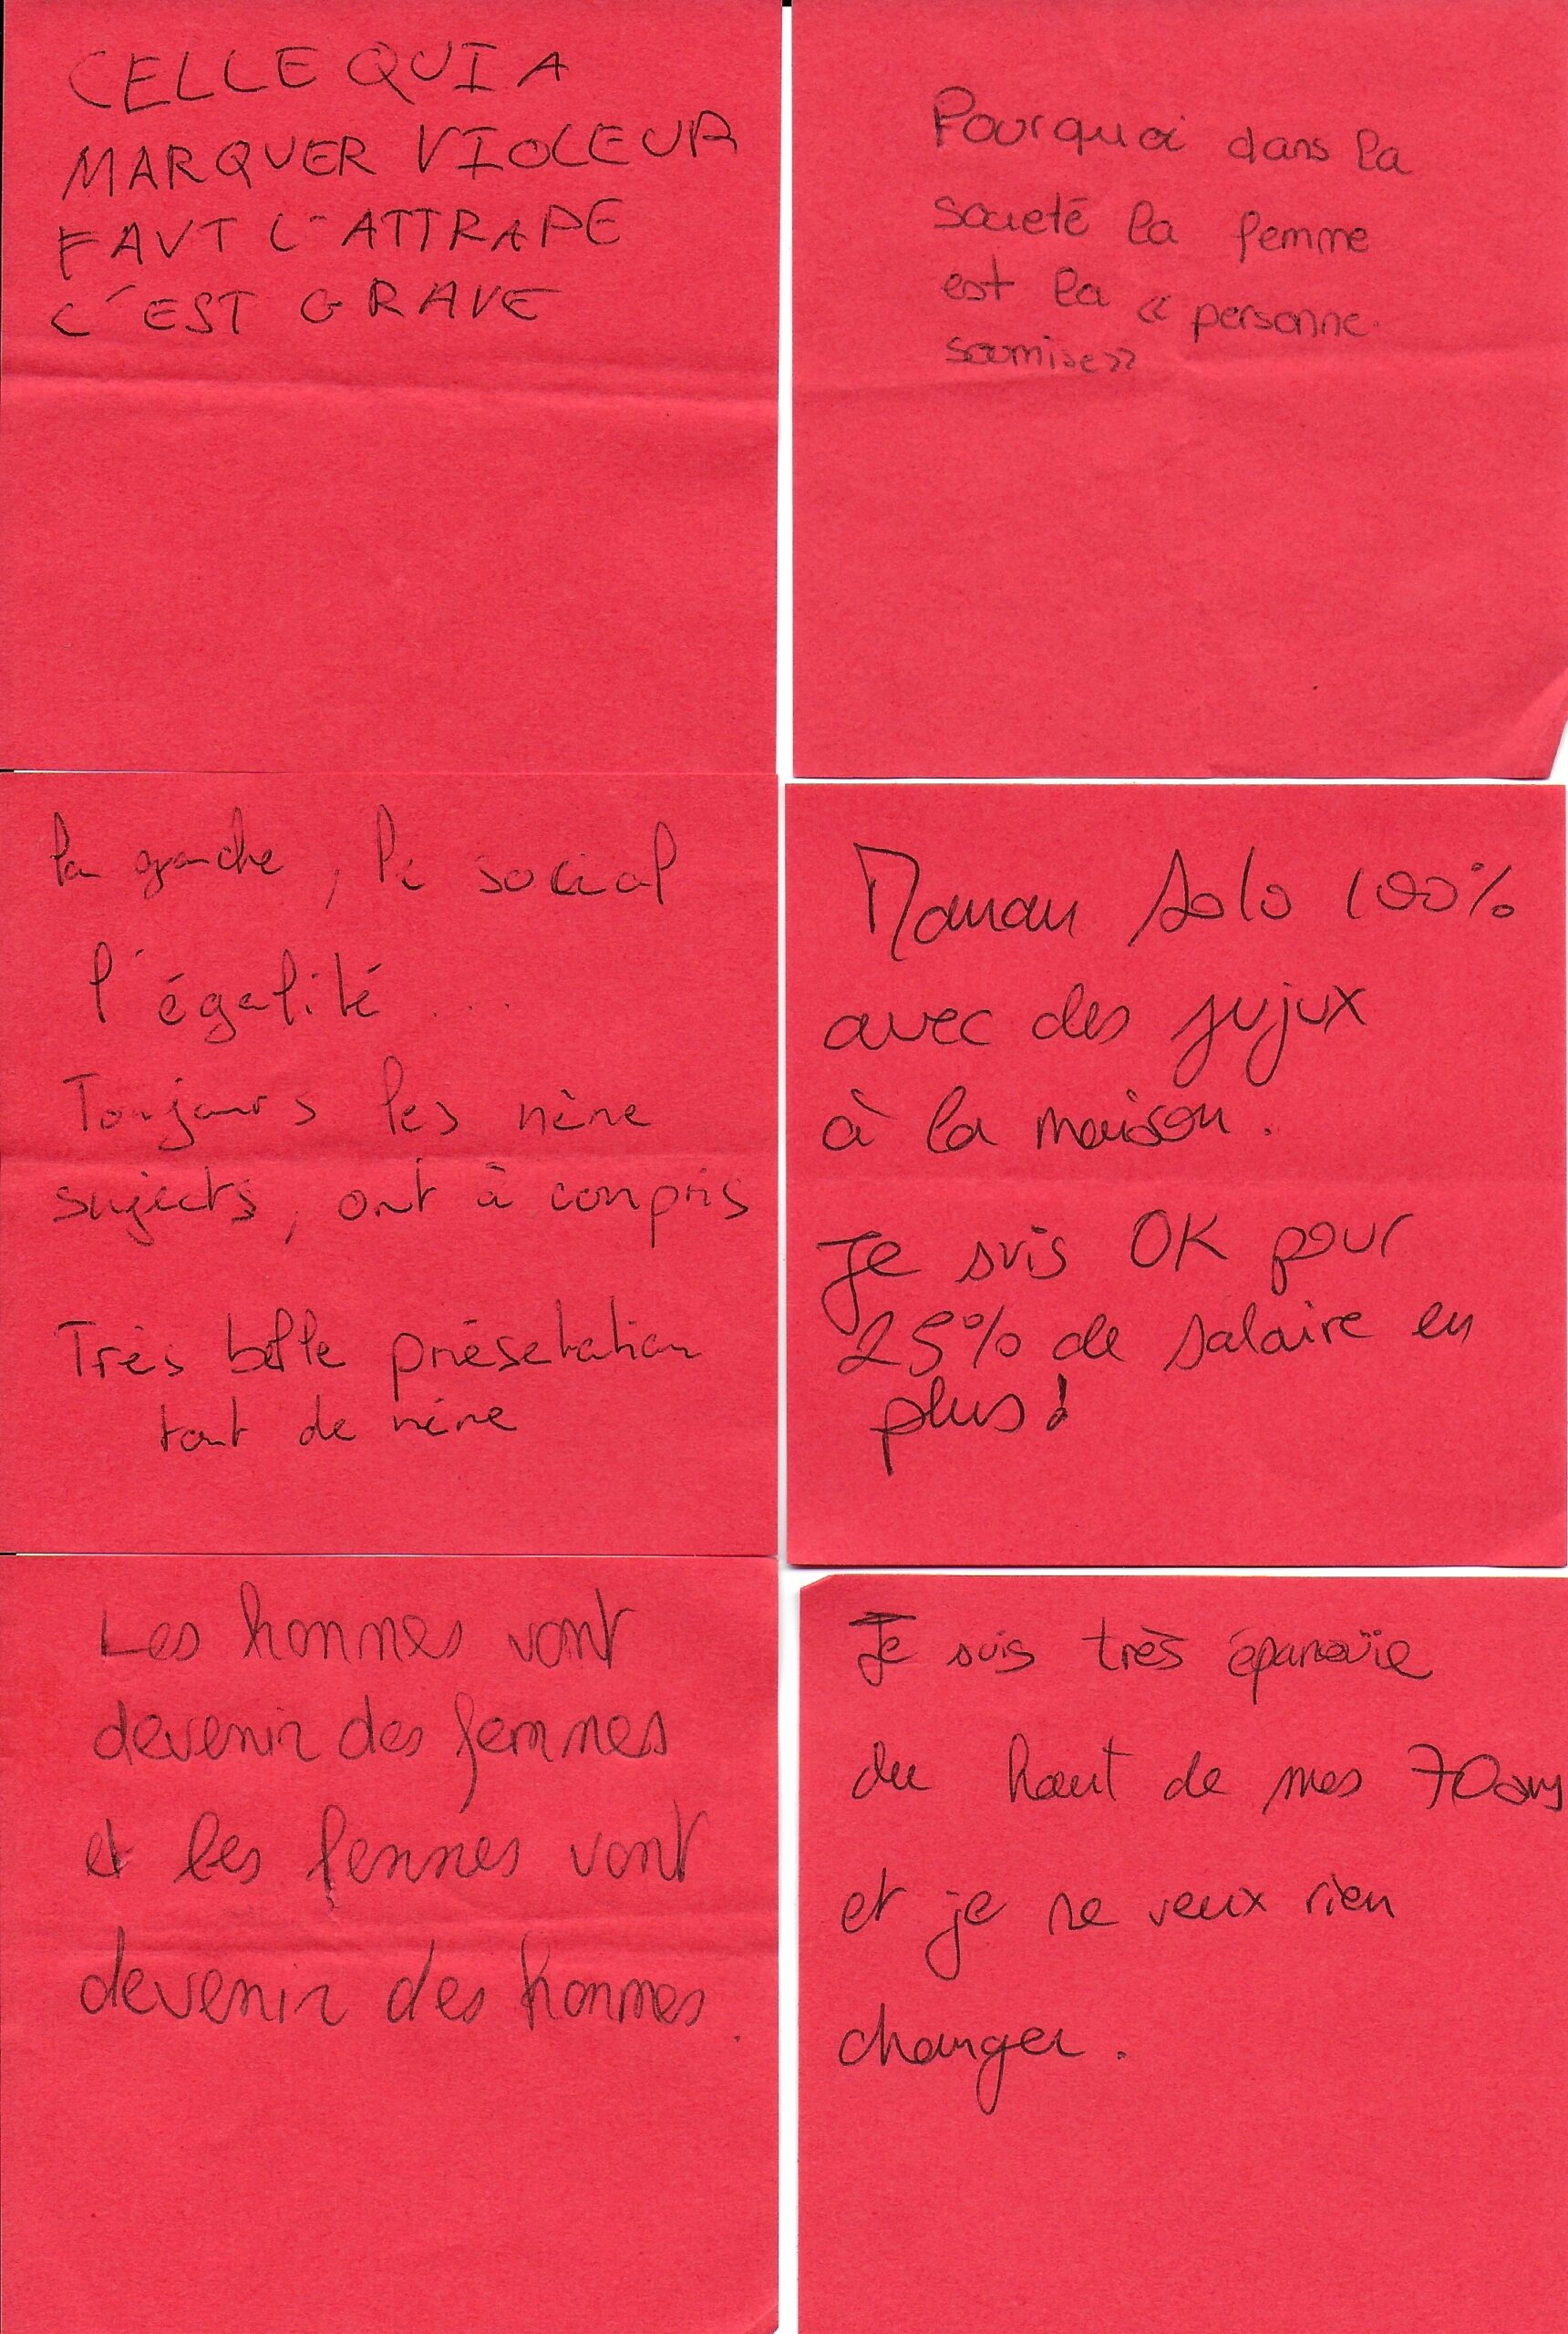 CELLE QUI A
MARQUER VIOLEUR
FAUT L'ATTRAPE
C'EST GRAVE
Pourquoi dans la
societé la femme
est la « personne
soumise»
la gauche, le social
l'égalité ...
Toujours les même
sujects, ont à compris
Très belle présetation
tout de même
Maman solo 100%
avec des jujux
à la maison.
Je suis OK pour
25% de salaire en
plus !
Les hommes vont
devenir des femmes
et les femmes vont
devenir des hommes.
Je suis très épanouïe
du haut de mes 70 ans
et je ne veux rien
changer.